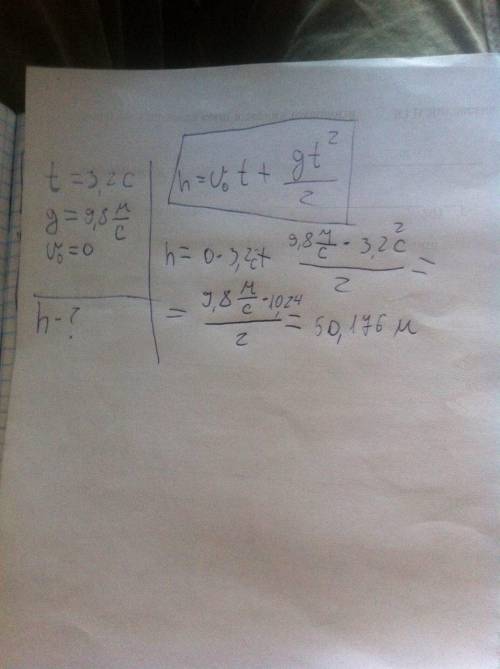 t = 3,2 с
g = 9,8 м/с
v₀ = 0
h - ?
h = v₀ t + gt²/2
h = 0 · 3,2c + 9,8 м/с · 3,2 с²/2 =
= 9,8 м/с · 10,24/2 = 50,176 м